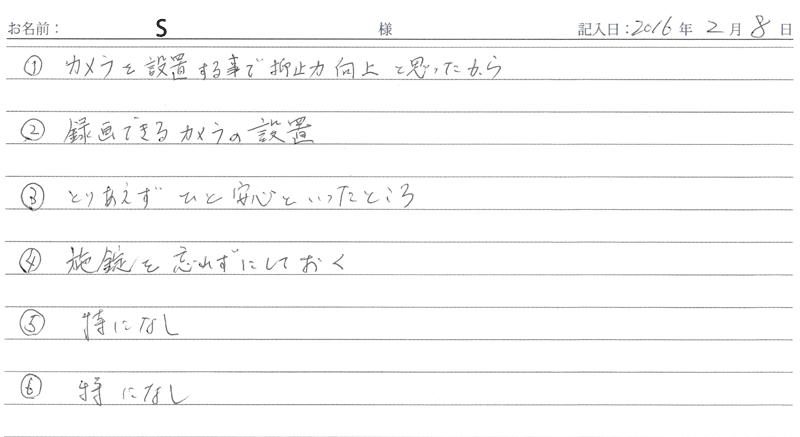 お名前： S 様 記入日：2016年 2月 8日
① カメラを設置する事で抑止力向上と思ったから
② 録画できるカメラの設置
③ とりあえず ひと安心といったところ
④ 施錠を忘れずにしておく
⑤ 特になし
⑥ 特になし